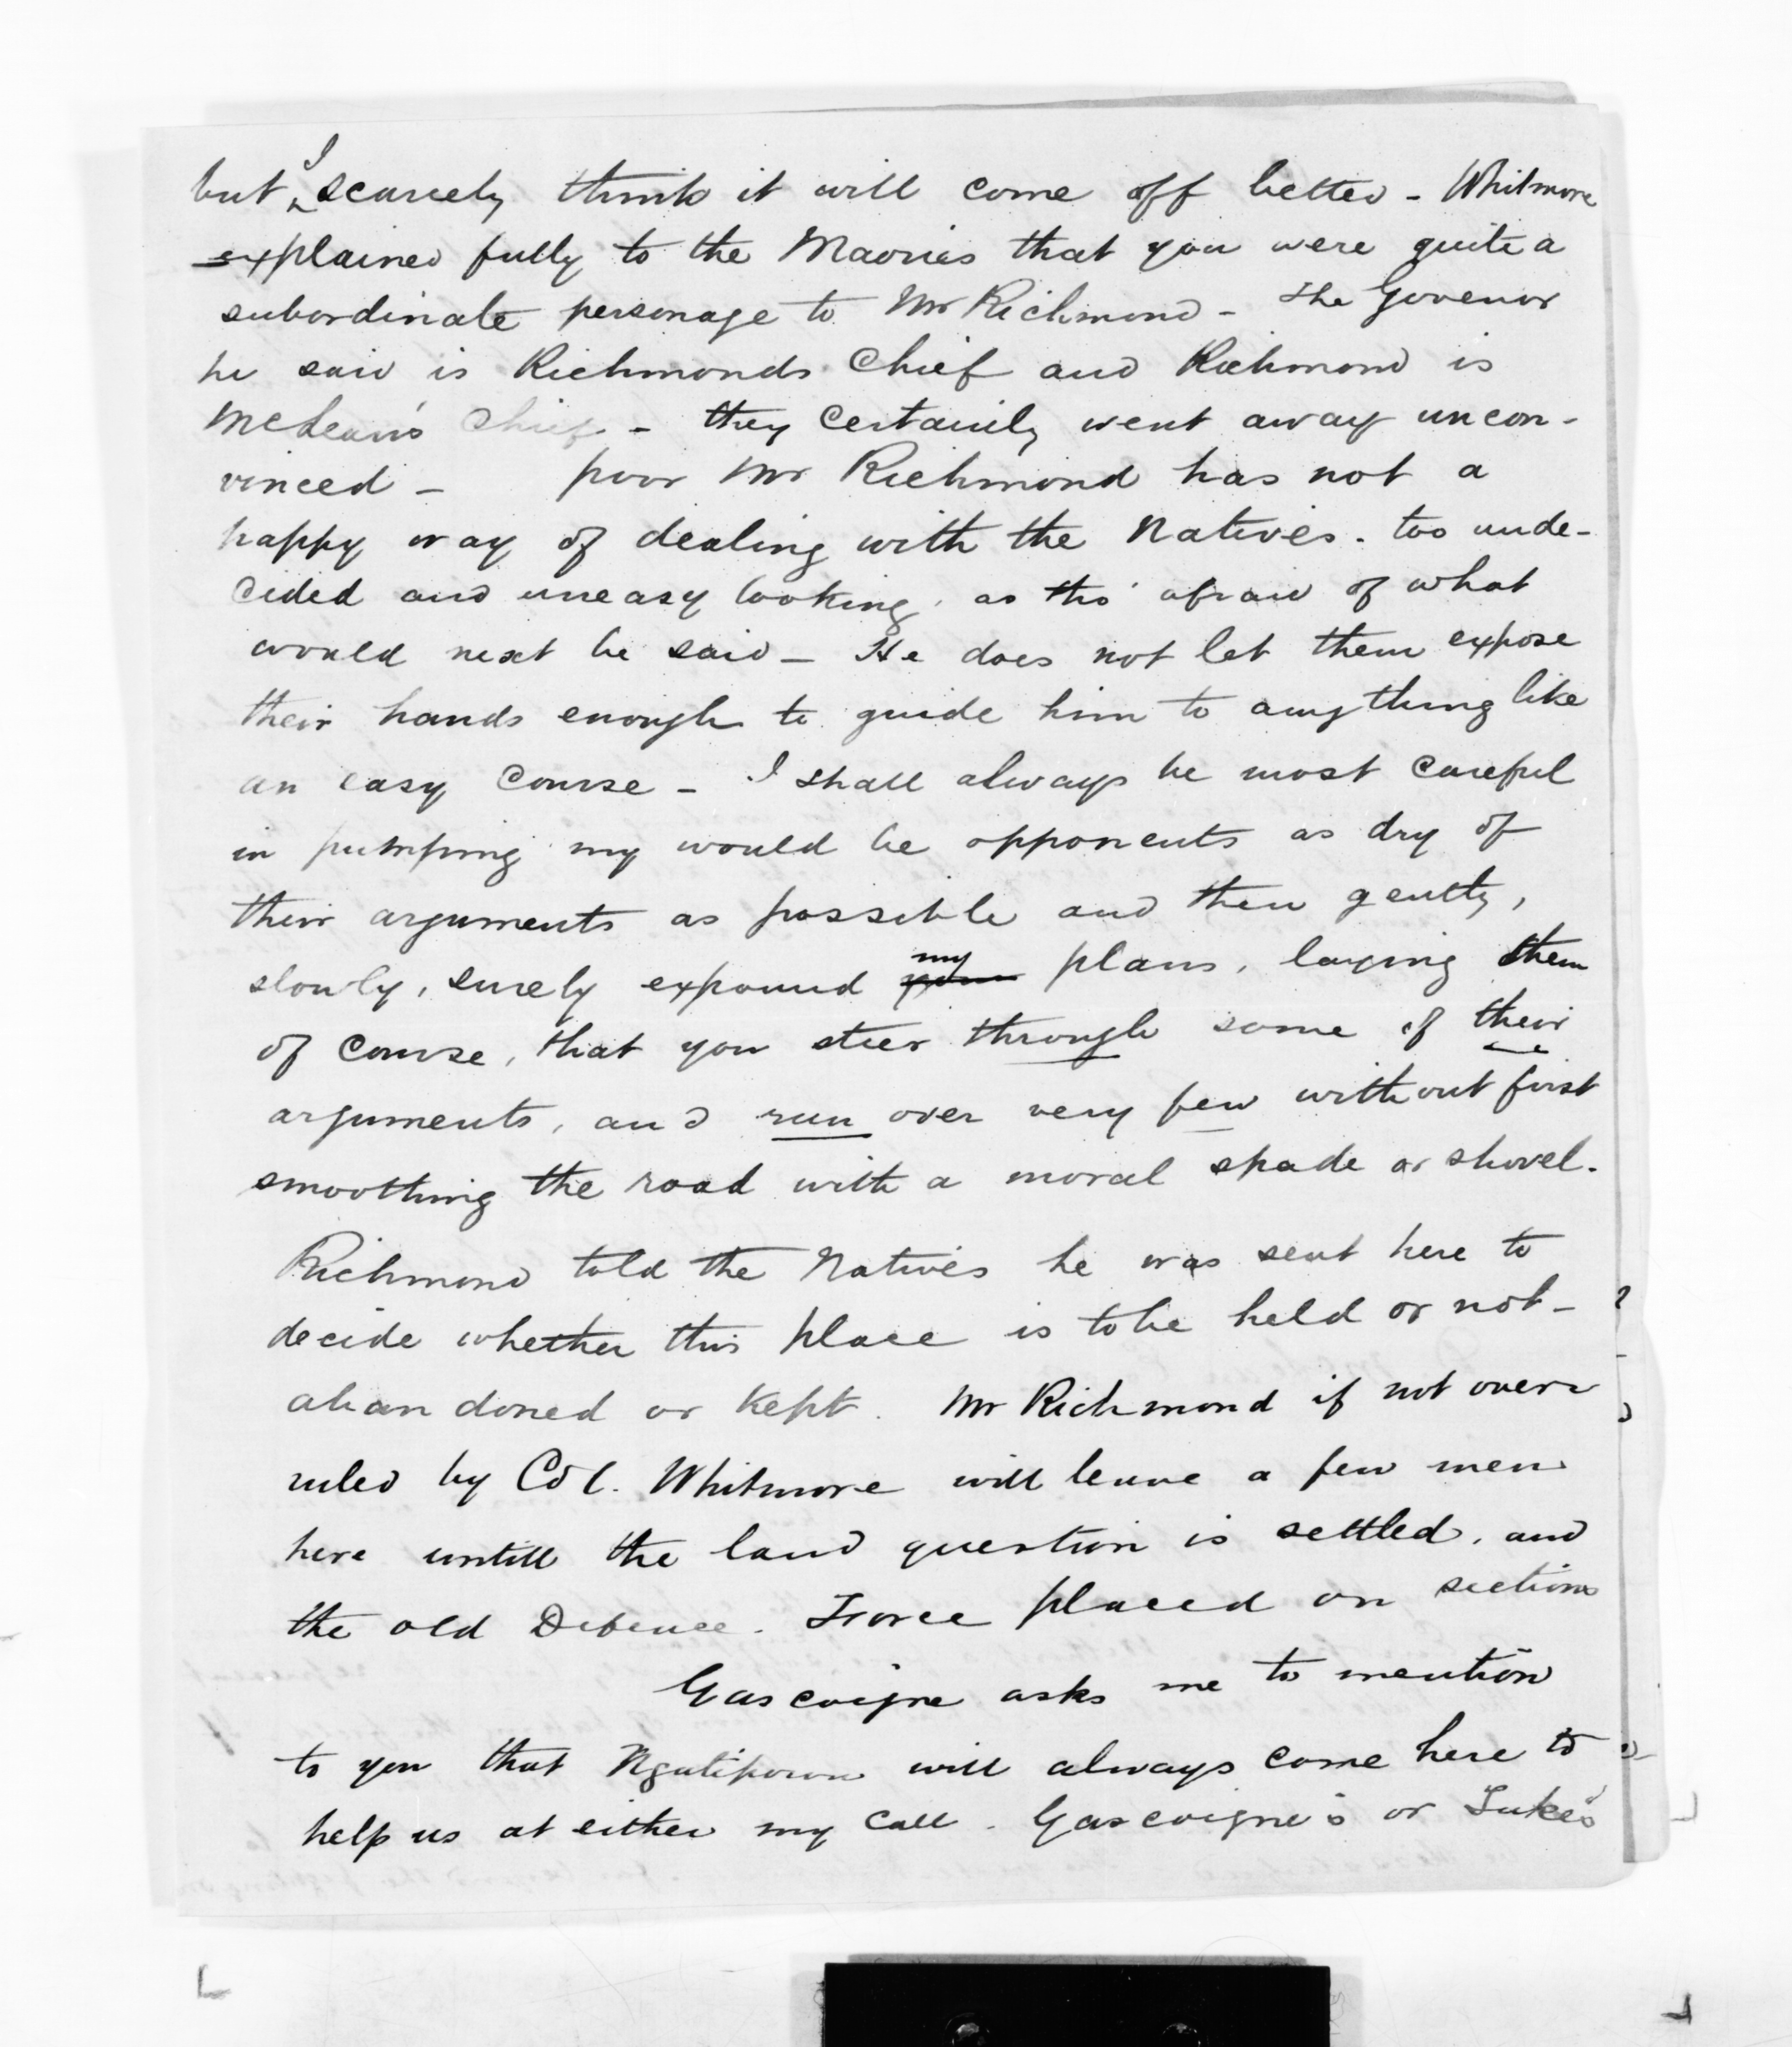 but I scarcely think it will come off better - Whitmore
explained fully to the Maories that you were quite a
subordinate personage to Mr Richmond - the Govenor
he said is Richmonds Chief and Richmond is
McLean's Chief - they certainly went away uncon-
vinced - poor Mr Richmond has not a
happy way of dealing with the Natives. too unde-
cided and uneasy looking, as tho' afraid of what
would next be said - He does not let them expose
their hands enough to guide him to anything like
an easy course - I shall always be most careful
in pumping my would be opponents as dry of
their arguments as possible and then gently,
slowly, surely expound my plans, laying them
of course, that you steer through some of their
arguments, and run over very few without first
smoothing the road with a moral spade or shovel.
Richmond told the Natives he was sent here to
decide whether this place is to be held or not -
abandoned or kept. Mr Richmond if not over
ruled by Col. Whitmore will leave a few men
here untill the land question is settled, and
the old Defence. Force placed on sections
Gascoigne asks me to mention
to you that Ngatiporou will always come here to
help us at either my call. Gascoigne's or Luke's